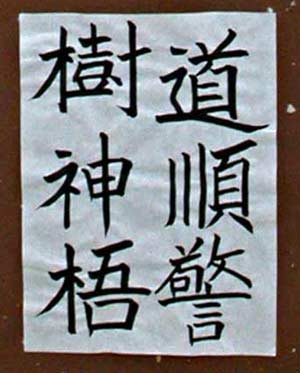 道順警
樹神梧